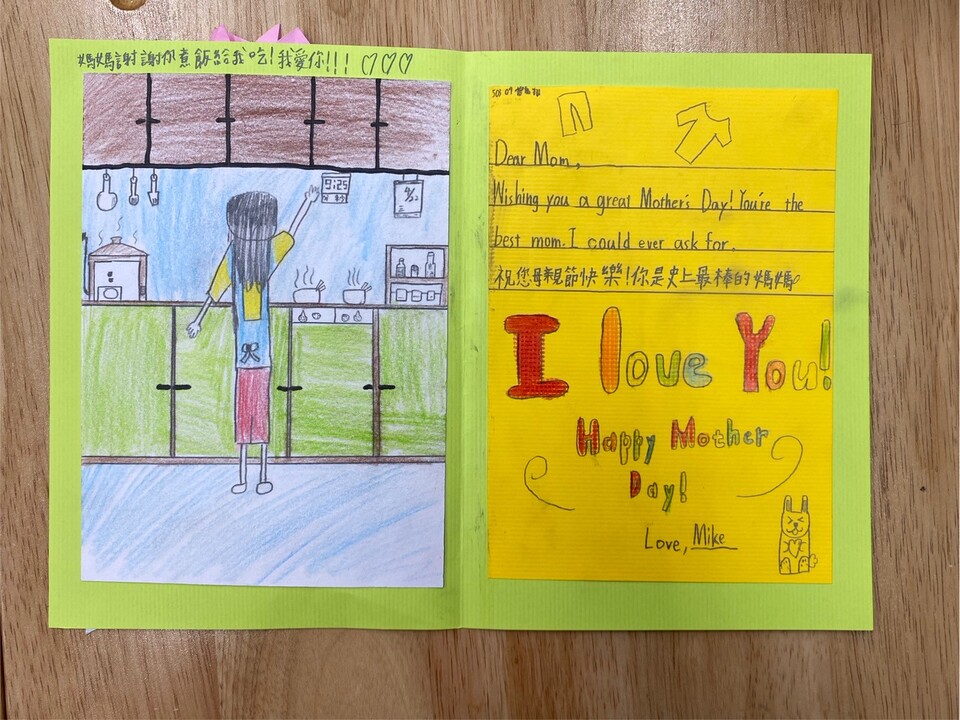 媽媽謝謝你煮飯給我吃!我愛你!!! ♡♡♡
9:25
Dear Mom,
Wishing you a great Mother's Day! You're the
best mom I could ever ask for.
祝您母親節快樂!你是史上最棒的媽媽
I love You!
Happy Mother
Day!
Love, Mike